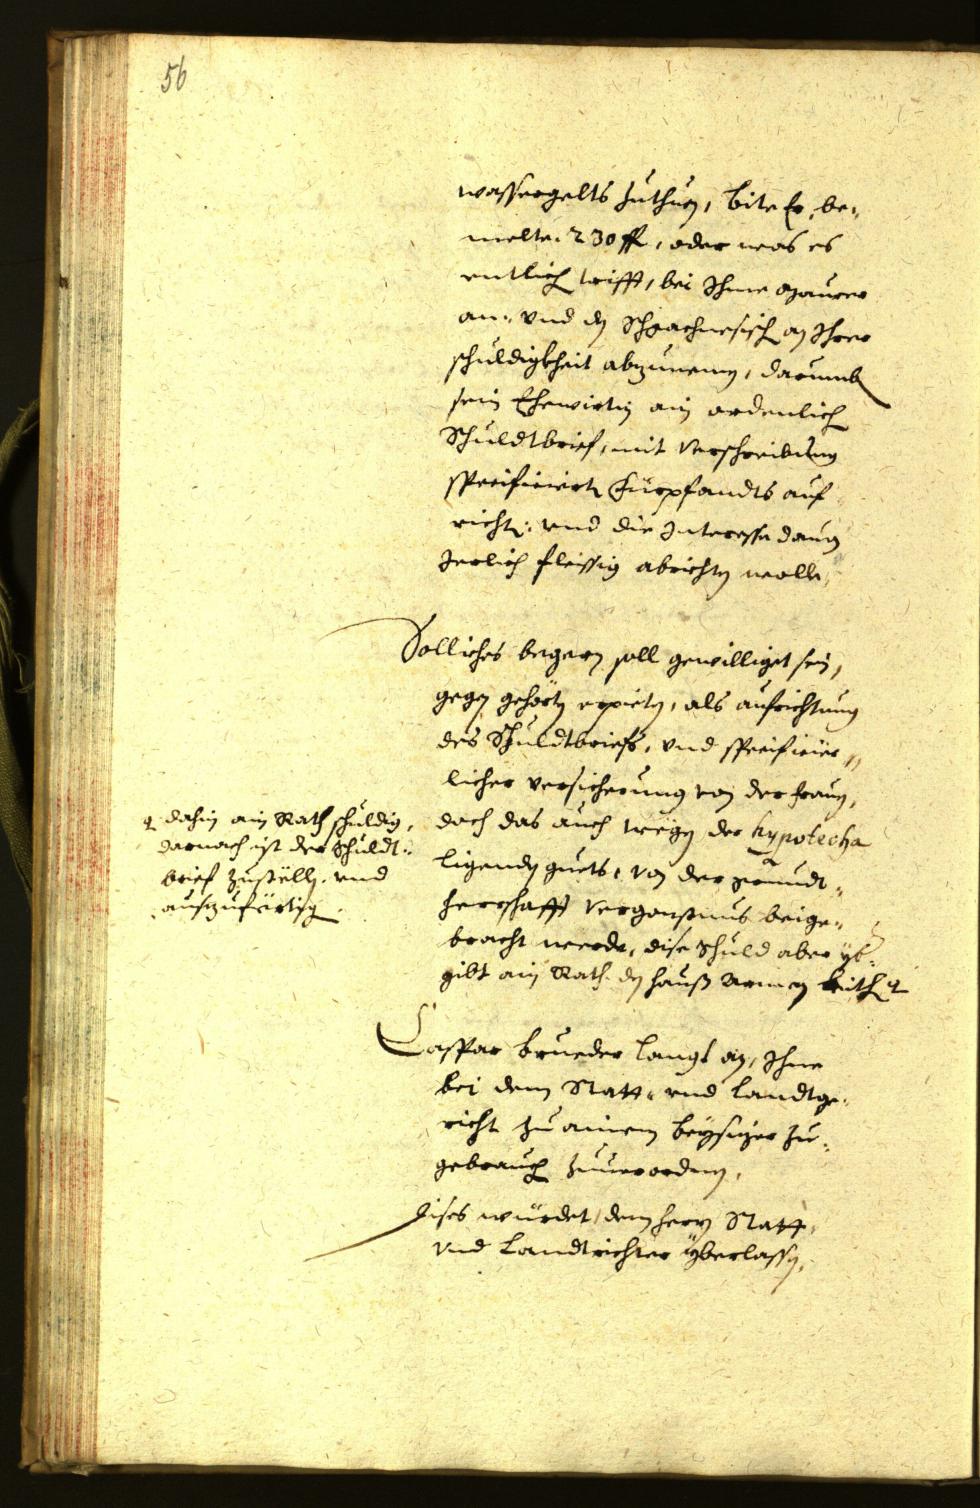 56
wassergelts zuthuen, bite Er, be-
melte 230 fl, oder was es
entlich trifft, bei Ihme
an- vnd den an Ihrer
schuldigkheit abzunemen, darumb
sein Ehewirtin ain ordenlich
Schuldtbrief, mit Verschreibung
specificierts Fürpfandts auf
richten, vnd die Interesse dauon
Jerlich fleissig abrichten wolle.
Solliches begern soll gewilliget sein,
gegen gehörten erpieten, als aufrichtung
des Schuldtbriefs, vnd specificier-
licher versicherung von der frauen,
doch das auch wegen der hypotecha
ligenden guets, von der grundt-
herrschafft Vergonstnus beige-
bracht werde, dise Schuld aber yb-
gibt ain Rath den hauß Armen leithen
dahin ain Rath schuldig,
darnach ist der Schuldt-
brief zustellen vnd
auszufertigen.
Caspar brueder langt an, Ihne
bei dem Statt- vnd Landtge-
richt zu ainem beysizer zu
gebrauch zuuerordnen.
Dises würdet dem herrn Statt-
vnd Landtrichter yberlassen.